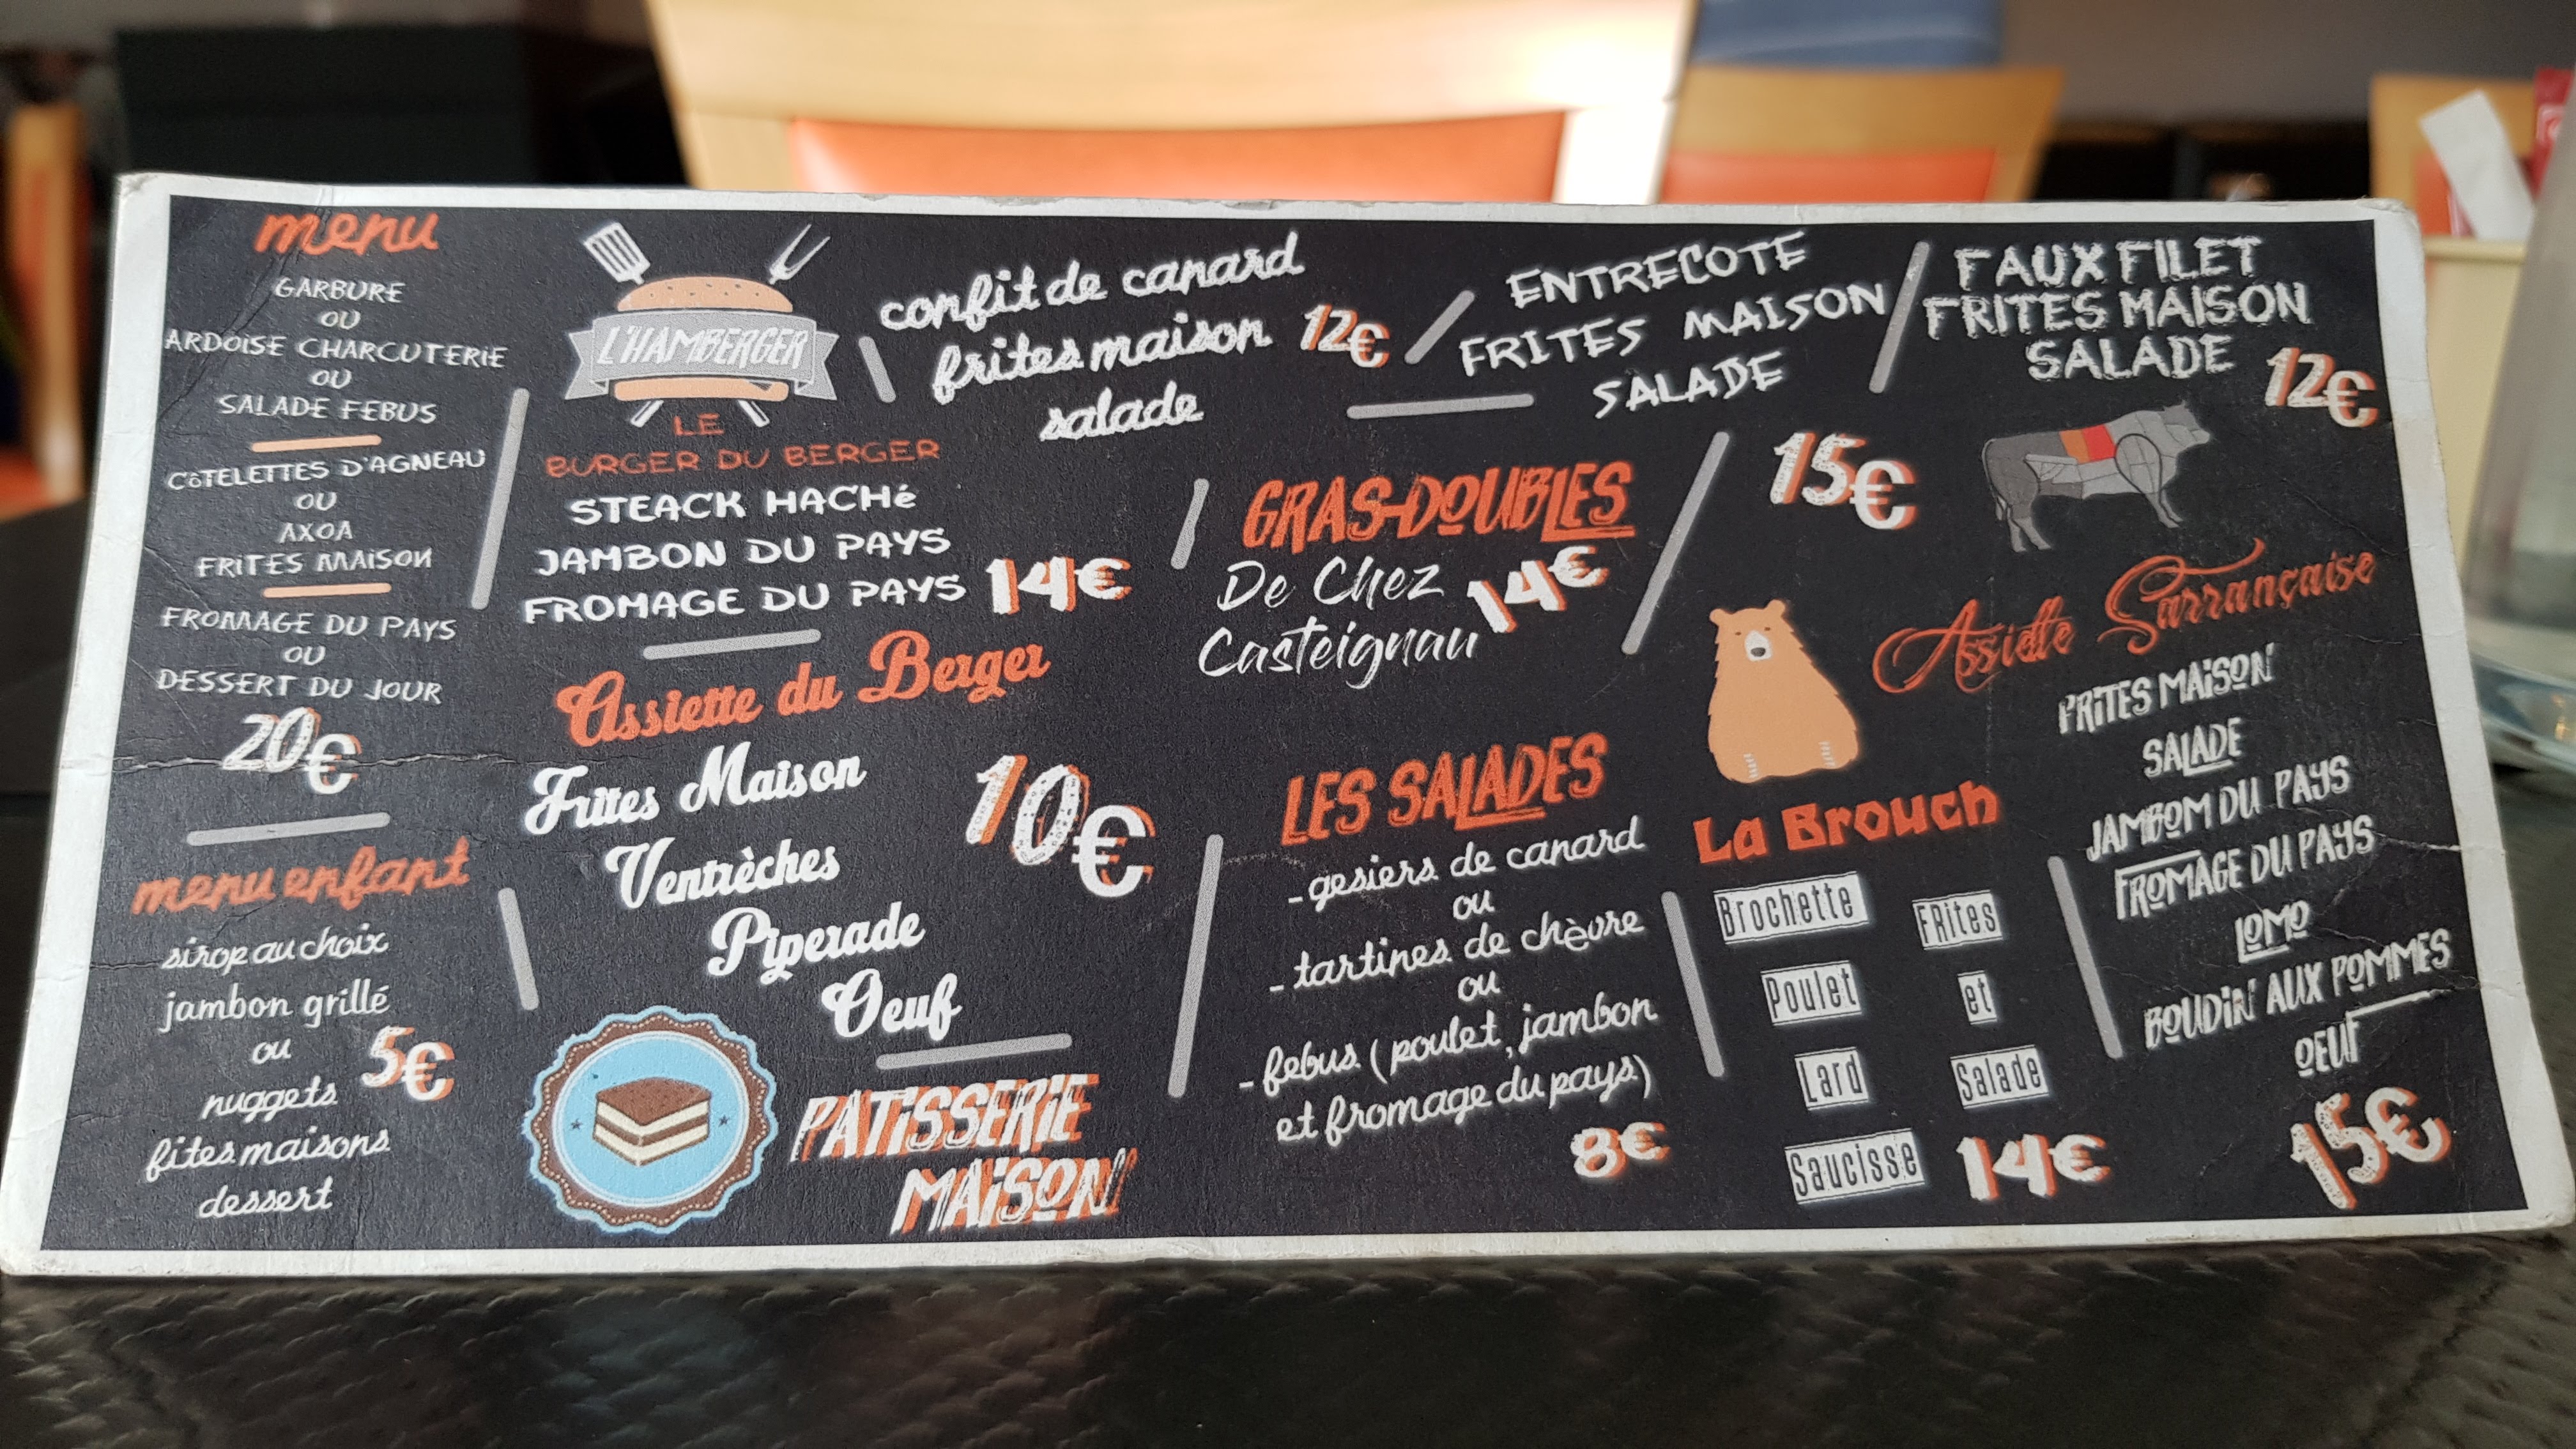 menu
GARBURE
OU
ARDOISE CHARCUTERIE
OU
SALADE FEBUS
CôTELETTES D'AGNEAU
OU
AXOA
FRITES MAISON
FROMAGE DU PAYS
OU
DESSERT DU JOUR
20€
menu enfant
sirop au choix
jambon grillé
ou
nuggets
5€
fites maisons
dessert
L'HAMBERGER
LE
BURGER DU BERGER
STEACK HACHé
JAMBON DU PAYS
FROMAGE DU PAYS
14€
Assiette du Berger
Frites Maison
Ventrèches
Piperade
Oeuf
10€
PATISSERIE
MAISON
confit de canard
frites maison
salade
12€
ENTRECOTE
FRITES MAISON
SALADE
15€
FAUX FILET
FRITES MAISON
SALADE
12€
GRAS-DOUBLES
De Chez
Casteignau
14€
LES SALADES
- gesiers de canard
ou
- tartines de chèvre
ou
- febus (poulet, jambon
et fromage du pays)
8€
La Brouch
Brochette
Poulet
Lard
Saucisse
FRites
et
Salade
14€
Assiette Sarrançaise
FRITES MAISON
SALADE
JAMBOM DU PAYS
FROMAGE DU PAYS
LOMO
BOUDIN AUX POMMES
OEUF
15€